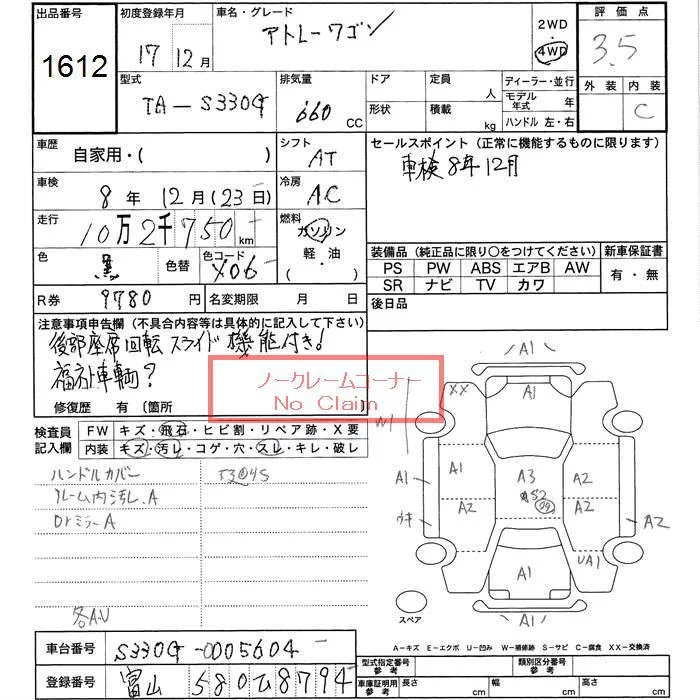 出品番号
1612
初度登録年月
17 12月
車名・グレード
アトレーワゴン
2WD
4WD
評価点
3.5
外装 内装
C
型式
TA-S330G
排気量
660 CC
ドア
形状
定員 人
積載 kg
ディーラー・並行
モデル年式 年
ハンドル 左・右
車歴
自家用・( )
シフト
AT
セールスポイント (正常に機能するものに限ります)
車検8年12月
車検
8年 12月(23日)
冷房
AC
走行
10万2千750 km
燃料
ガソリン
軽・油
( )
色
黒
色替
色コード
X06
装備品 (純正品に限り○をつけてください)
PS PW ABS エアB AW
SR ナビ TV カワ
新車保証書
有・無
R券 9780円
名変期限 月 日
後日品
注意事項申告欄 (不具合内容等は具体的に記入して下さい)
後部座席回転スライド機能付き!
福祉車輌?
ノークレームコーナー
No Claim
修復歴 有 〔箇所 〕
検査員記入欄
FW キズ・飛石・ヒビ割・リペア跡・X要
内装 キズ・汚レ・コゲ・穴・スレ・キレ・破レ
ハンドルカバー
ルーム内汚レ.A
Drミラー A
各A.U
A1
XX
A1
W1
A1
A1
A3
A2
S2
ウキ
A2
A2
A2
A1
UA1
A1
スペア
A-キズ E-エクボ U-凹み W-補修跡 S-サビ C-腐食 XX-交換済
車台番号
S330G-0005604
登録番号
富山 580 ひ 8794
型式指定番号
参考
類別区分番号
参考
車庫証明用
参考
長さ cm
幅 cm
高さ cm